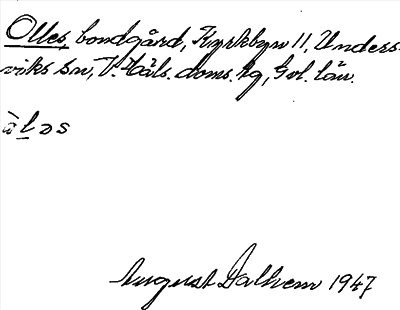 Olles, bondgård, Kyrkbyn 11, Unders-
viks sn, V. Häls. doms. tg, Gvl. län.
August Dalhem 1947